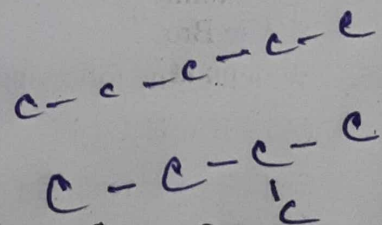 C - C - C - C - C
C - C - C - C
C